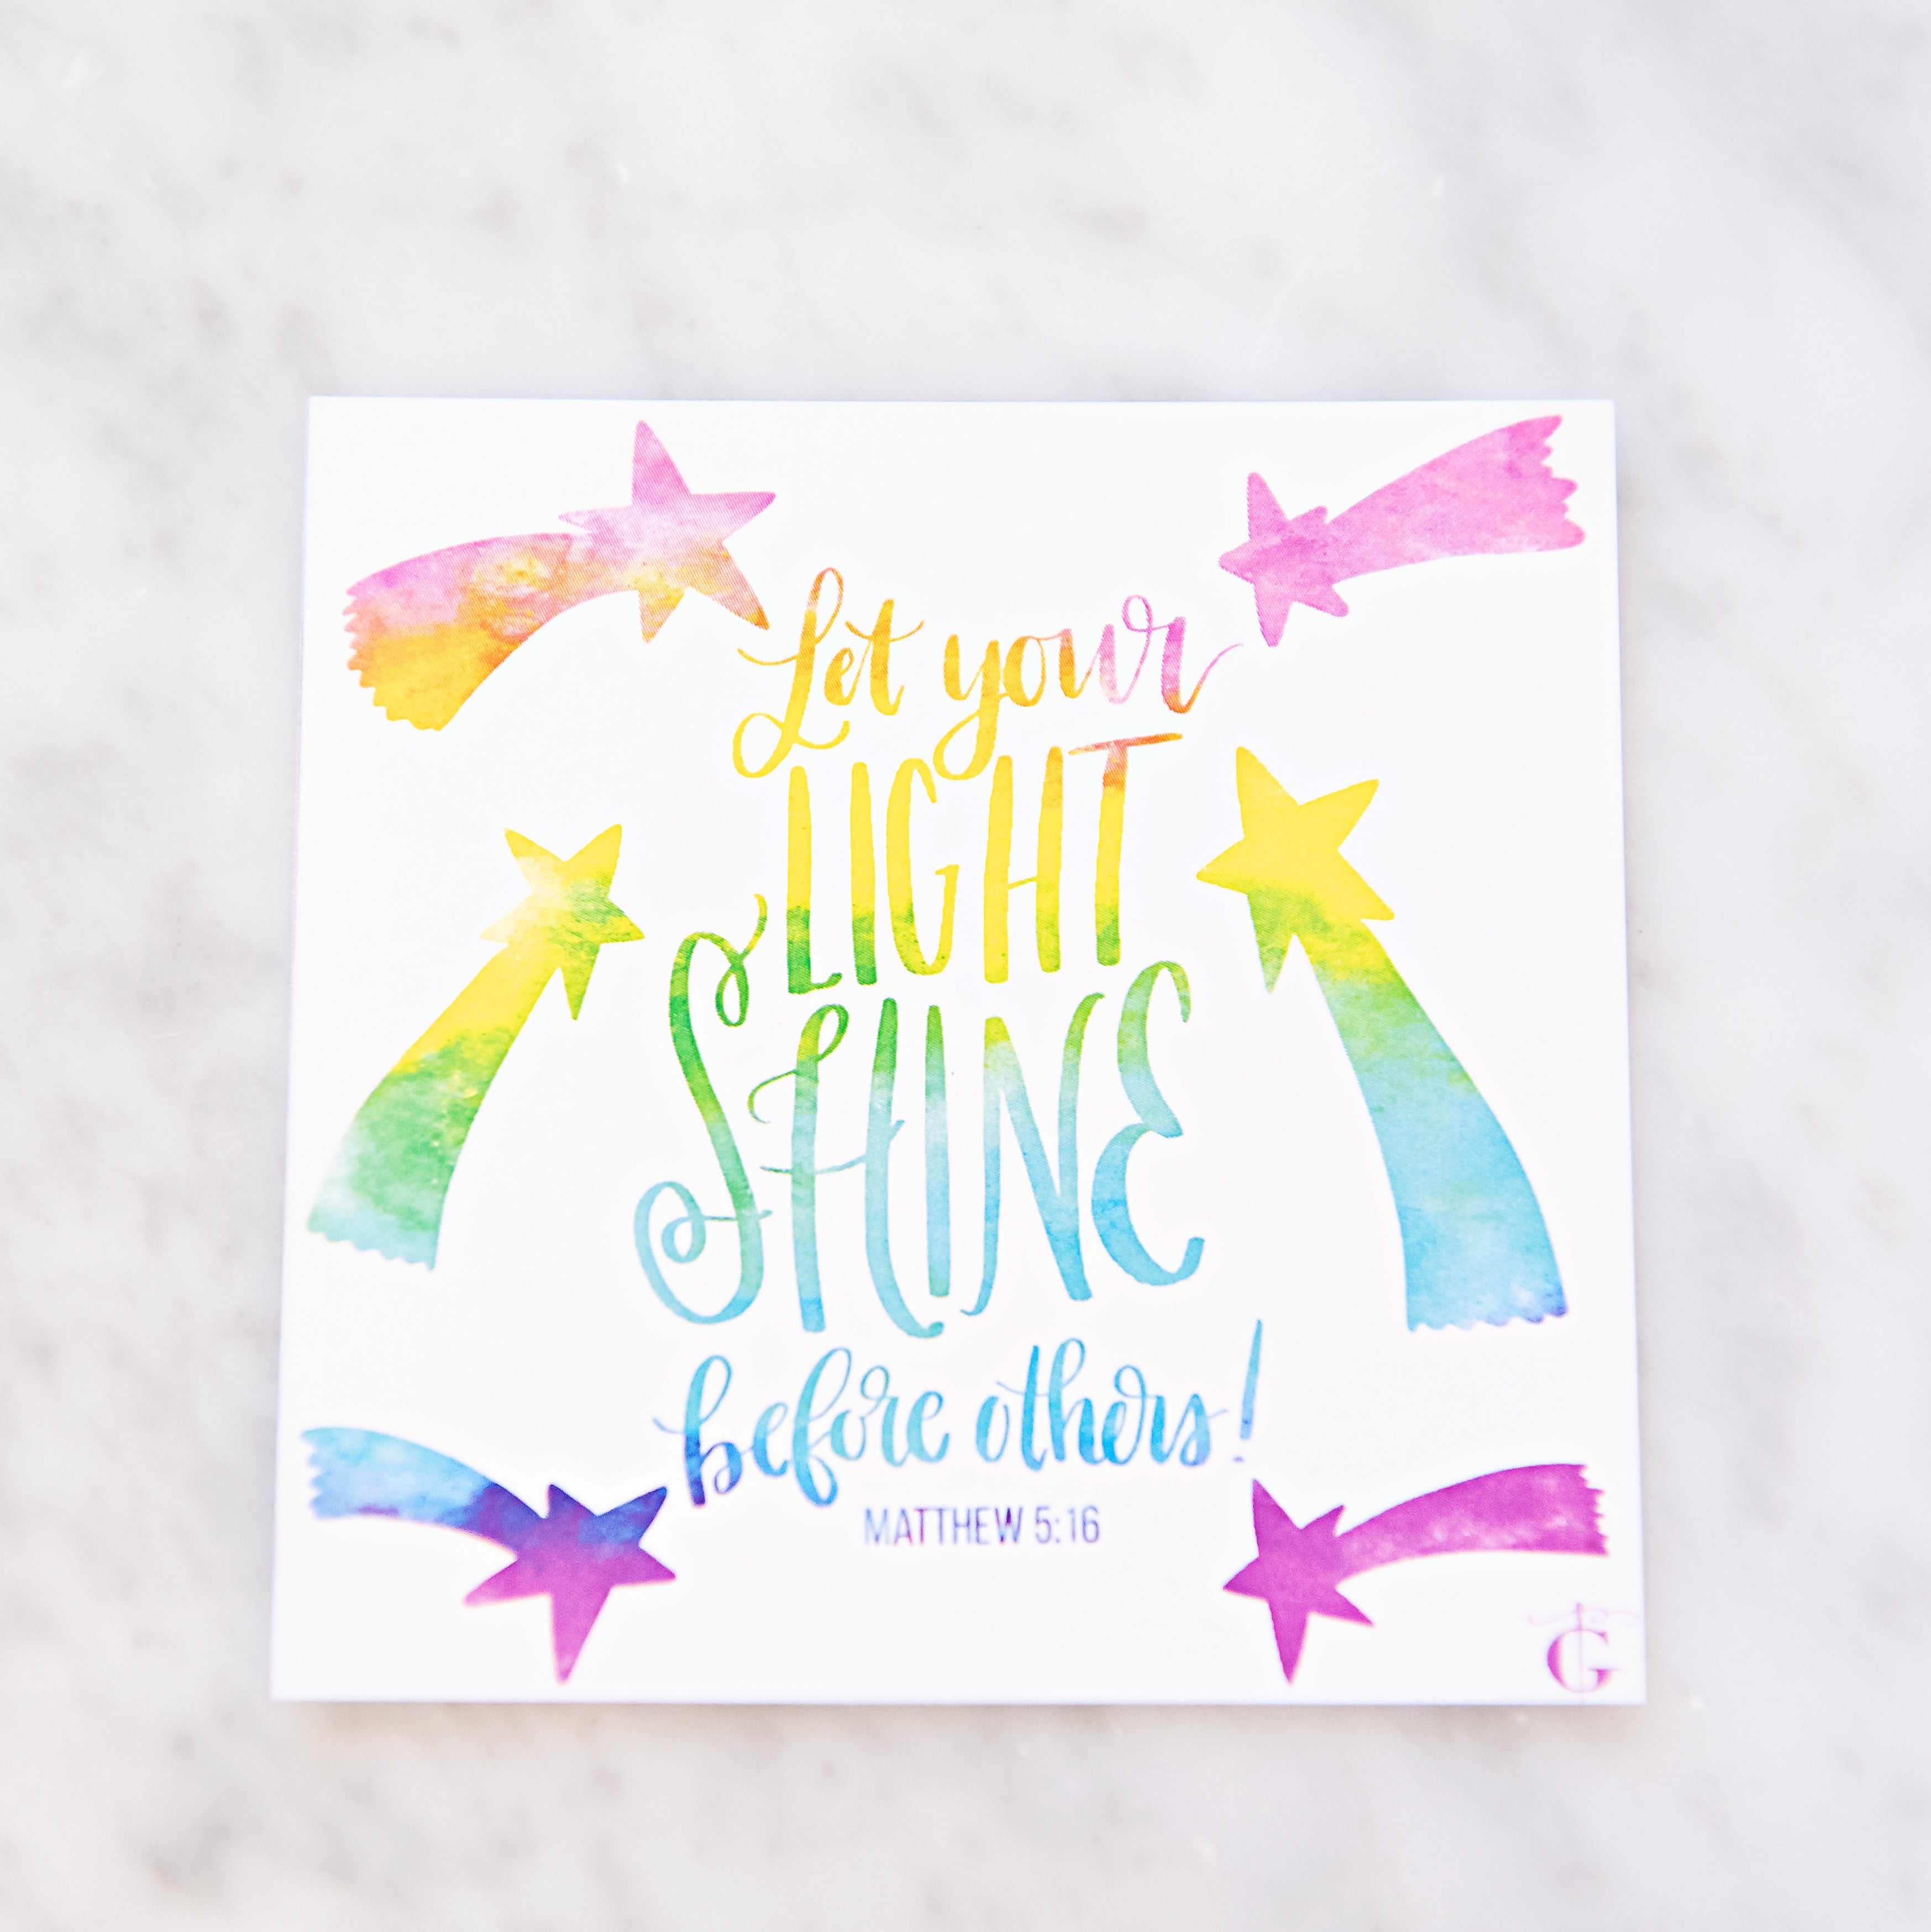 Let your
LIGHT
SHINE
before others!
MATTHEW 5:16
G